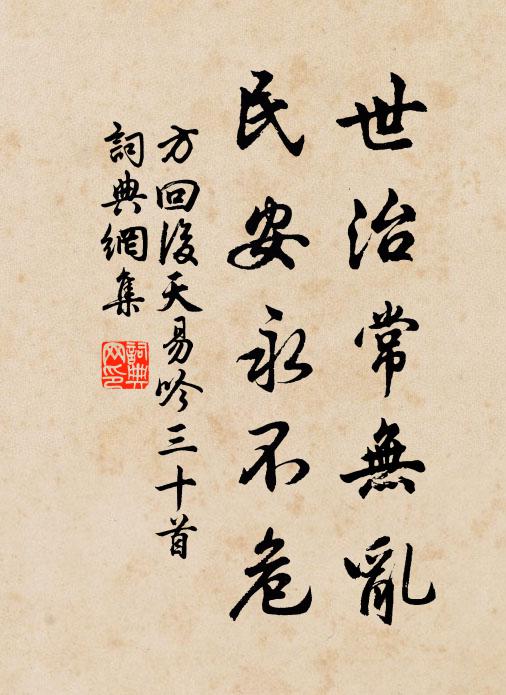 世治常無亂
民安永不危
方回後天易吟三十首
詞典網集
詞典網印